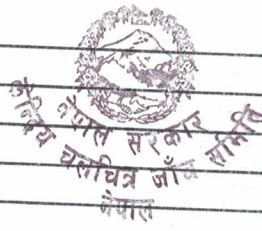 नेपाल सरकार
केन्द्रिय चलचित्र जाँच समिति
नेपाल